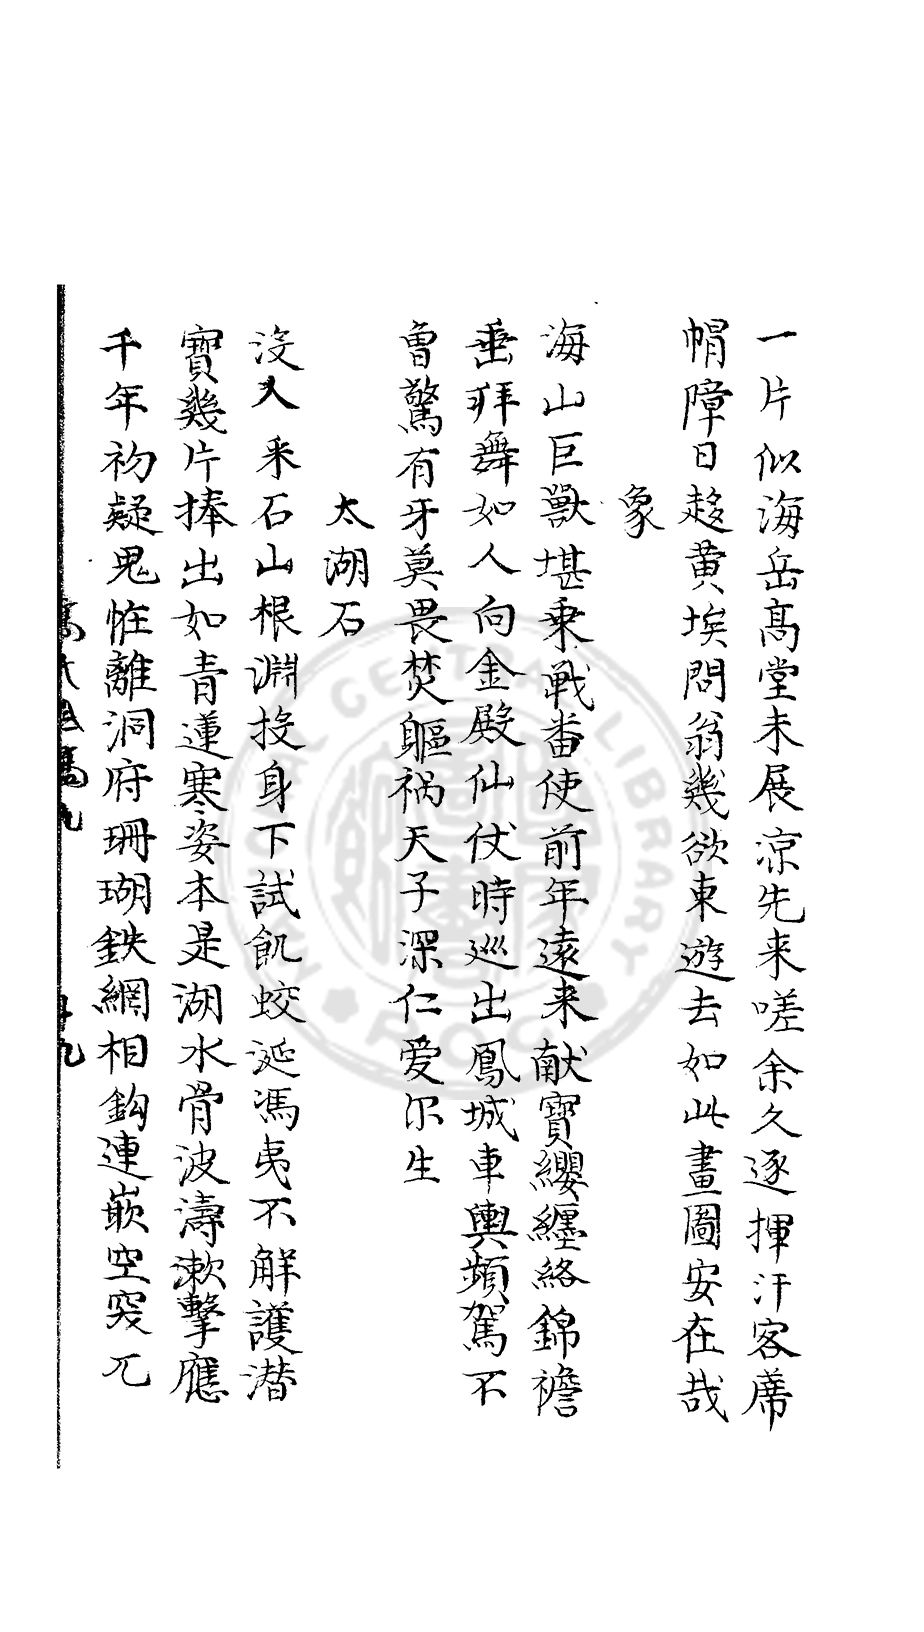 一片似海岳高堂未展涼先来嗟余久逐揮汗客席
帽障日趍黄埃問翁幾欲東遊去如此畫圖安在哉
象
海山巨獸堪乗戰畨使前年遠来献寳纓纏絡錦襜
垂拜舞如人向金殿仙仗時巡出鳳城車輿頻駕不
曾驚有牙莫畏焚軀祸天子深仁爱尔生
太湖石
没人采石山根淵投身下試飢蛟涎馮夷不解護潜
寳幾片捧出如青蓮寒姿本是湖水骨波濤漱擊應
千年初疑鬼恠離洞府珊瑚鉄網相鈎連嵌空突兀
NATIONAL CENTRAL LIBRARY